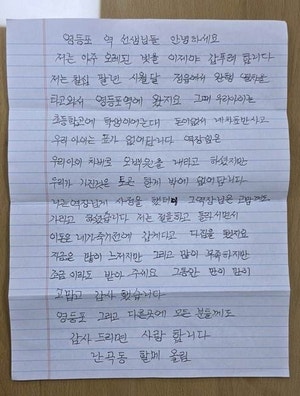 영등포 역 선생님들 안녕하세요
저는 아주 오래된 빚을 이제야 갚투려 합니다
저는 칠십 팔년 시월달 정읍에서 완행 열차를
타고와서 영등포역에 왔지요 그때 우리아이는
초등학교에 학생이여는대 돈이없서 네차표만사고
우리 아이는 표가 없어답니다 역장님은
우리아이 차비로 오백원을 내라고 하셨지만
우리가 가진것은 토큰 한게 밖에 없어답니다
나는 역장님게 사정을 했더니 그역장님은 고맙게도
가라고 하셨습니다 저는 절을하고 돌라서면서
이돈은 내가 죽기전에 갑게다고 다짐을 했지요
지금은 많이 느저지만 그리고 많이 부족하지만
조금 이라도 받아 주세요 그동안 많이 많이
고맙고 감사 했습니다
영등포 그리고 다른곳에 모든 분들께도
감사 드리면 사랑 합니다
난곡동 할메 올림